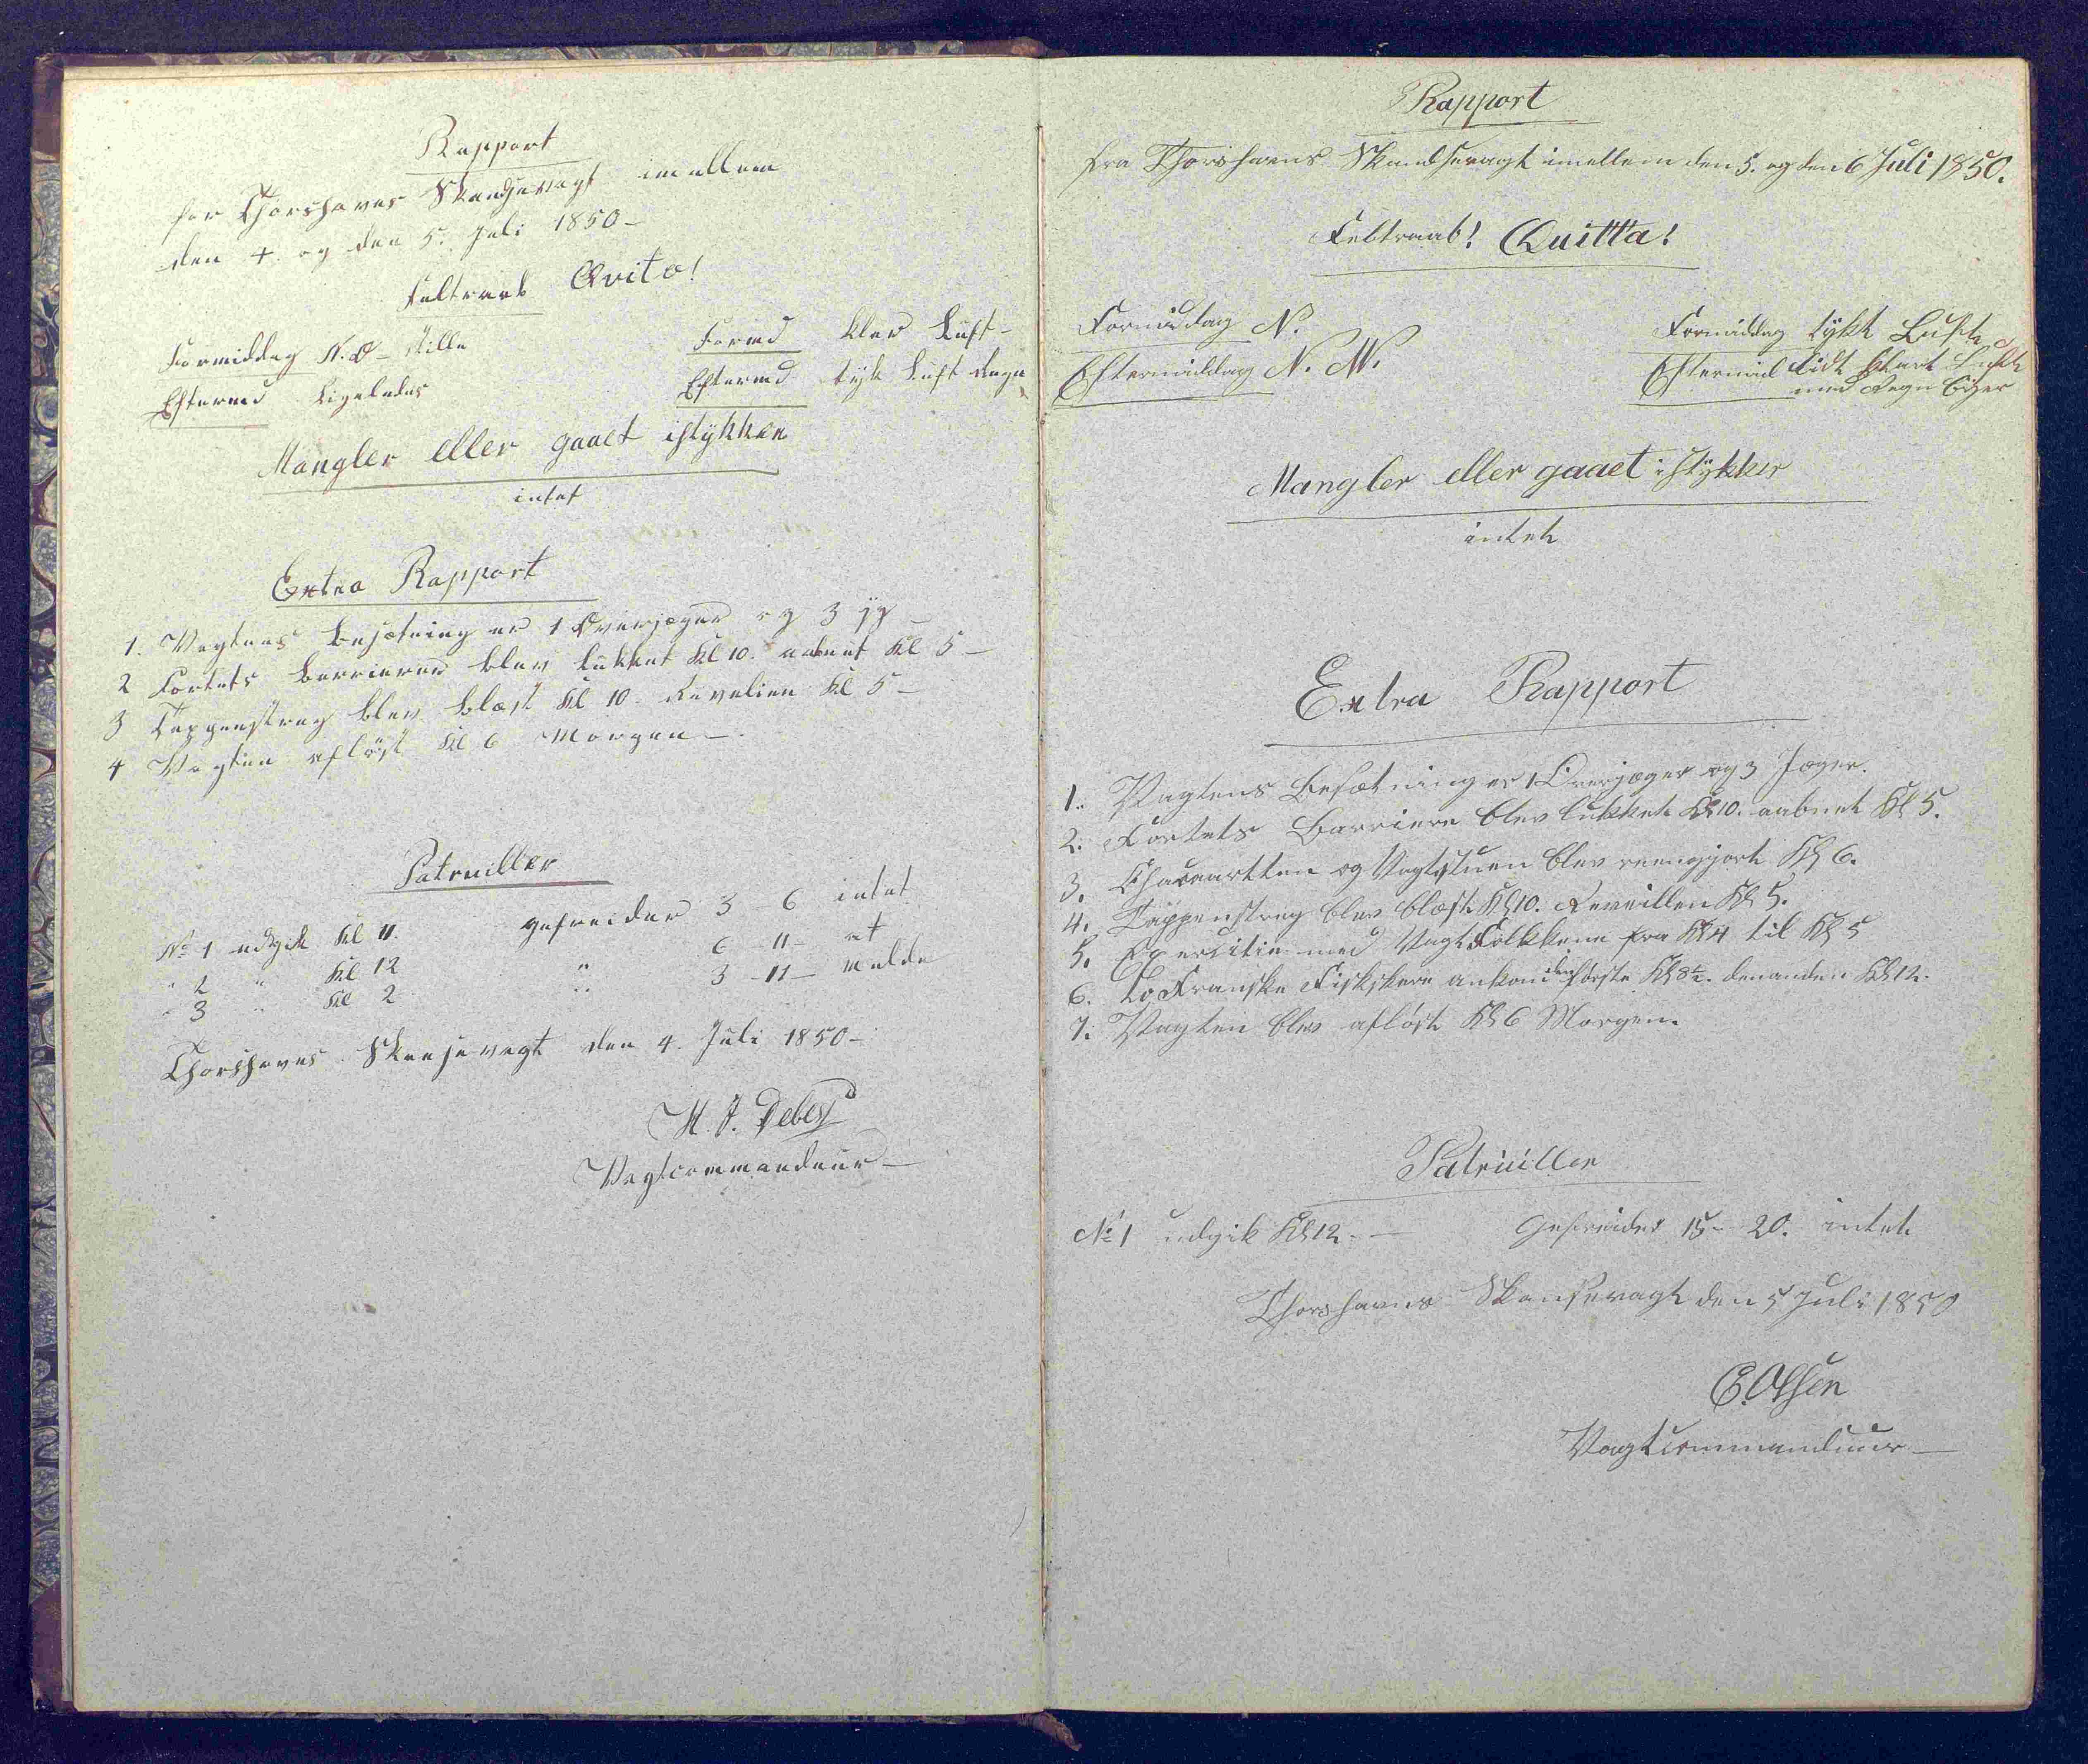 Rapport
for Thorshavns Skandsevagt imellem
den 4. og den 5. Juli 1850 –
Feltraab Qvito!
Formiddag N. O – stille
Formd klar Luft –
Eftermd Ligeledes
Eftermd tyk Luft Regn
Mangler eller gaaet istykker
intet
Extra Rapport
1. Vagtens Besætning er 1 Overjæger og 3 jg –
2 Fortets Barrieren blev lukket Kl 10. aabnet Kl 5 –
3 Tappenstreg blev blæst Kl 10. Revelien Kl 5 –
4 Vagten afløst Kl 6 Morgen –
Patruiller
No 1 udgik Kl 11. gefreider 3 – 6 intet
" 2 " Kl 12 " 6 – 11 – at
" 3 " Kl 2 " 3 – 11 – melde
Thorshavns Skansevagt den 4. Juli 1850 –
M. J. Debes
Vagtcommandeur –
Rapport
fra Thorshavns Skandsevagt imellem den 5. og den 6 Juli 1850.
Feltraab! Quitta!
Formidag N.
Formiddag tykt Luft,
Eftermiddag N. W.
Eftermid lidt klart Luft
med Regn Biger
Mangler eller gaaet istykker
intet
Extra Rapport
1. Vagtens Besætning er 1 Overjæger og 3 Jæger.
2. Fortets Barriere blev lukket Kl 10. aabnet Kl 5.
3. og Vagtstuen blev reengjort Kl 6.
4. Tappenstreg blev blæst Kl 10. Reveillen Kl 5.
5. Exersitie med Vagt Folkkene fra Kl 4 til Kl 5
6. to Franske Fiskskere ankom den første Kl 8½. den anden Kl 12.
7. Vagten blev afløst Kl 6 Morgen.
Patruiller
No 1 udgik Kl 12. – Gefreider 15 – 20. intet
Thorshavns Skansevagt den 5 Juli 1850
E. Olsen
Vagtcommandeur –